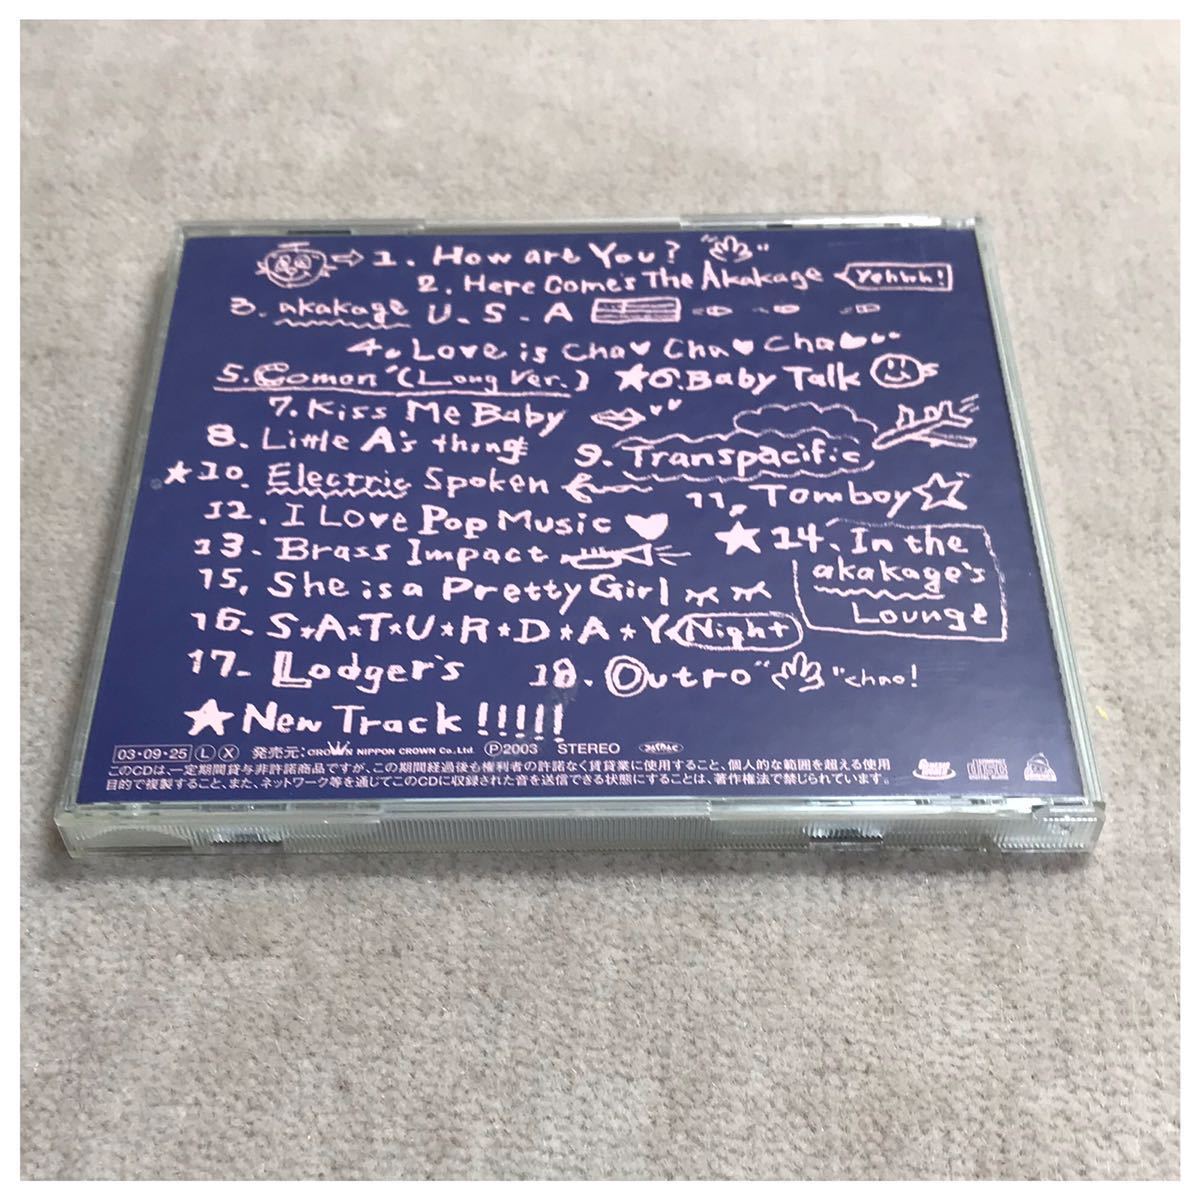 1. How are You?
2. Here Come's The Akakage Yehhh!
3. akakage U.S.A
4. Love is cha♥ cha♥ cha♥...
5. Comon' (Long Ver.) ★6. Baby Talk
7. Kiss Me Baby
8. Little A's thing 9. Transpacific
★10. Electric Spoken 11. Tomboy☆
12. I Love Pop Music ♥
13. Brass Impact ★14. In the akakage's Lounge
15. She is a Pretty Girl
16. S★A★T★U★R★D★A★Y Night
17. Lodger's 18. Outro "chao!
★ New Track !!!!!
03・09・25 Ⓛ Ⓧ 発売元: CROWN NIPPON CROWN Co.,Ltd. Ⓟ2003 STEREO
このCDは、一定期間貸与非許諾商品ですが、この期間経過後も権利者の許諾なく賃貸業に使用すること、個人的な範囲を超える使用
目的で複製すること、また、ネットワーク等を通じてこのCDに収録された音を送信できる状態にすることは、著作権法で禁じられています。